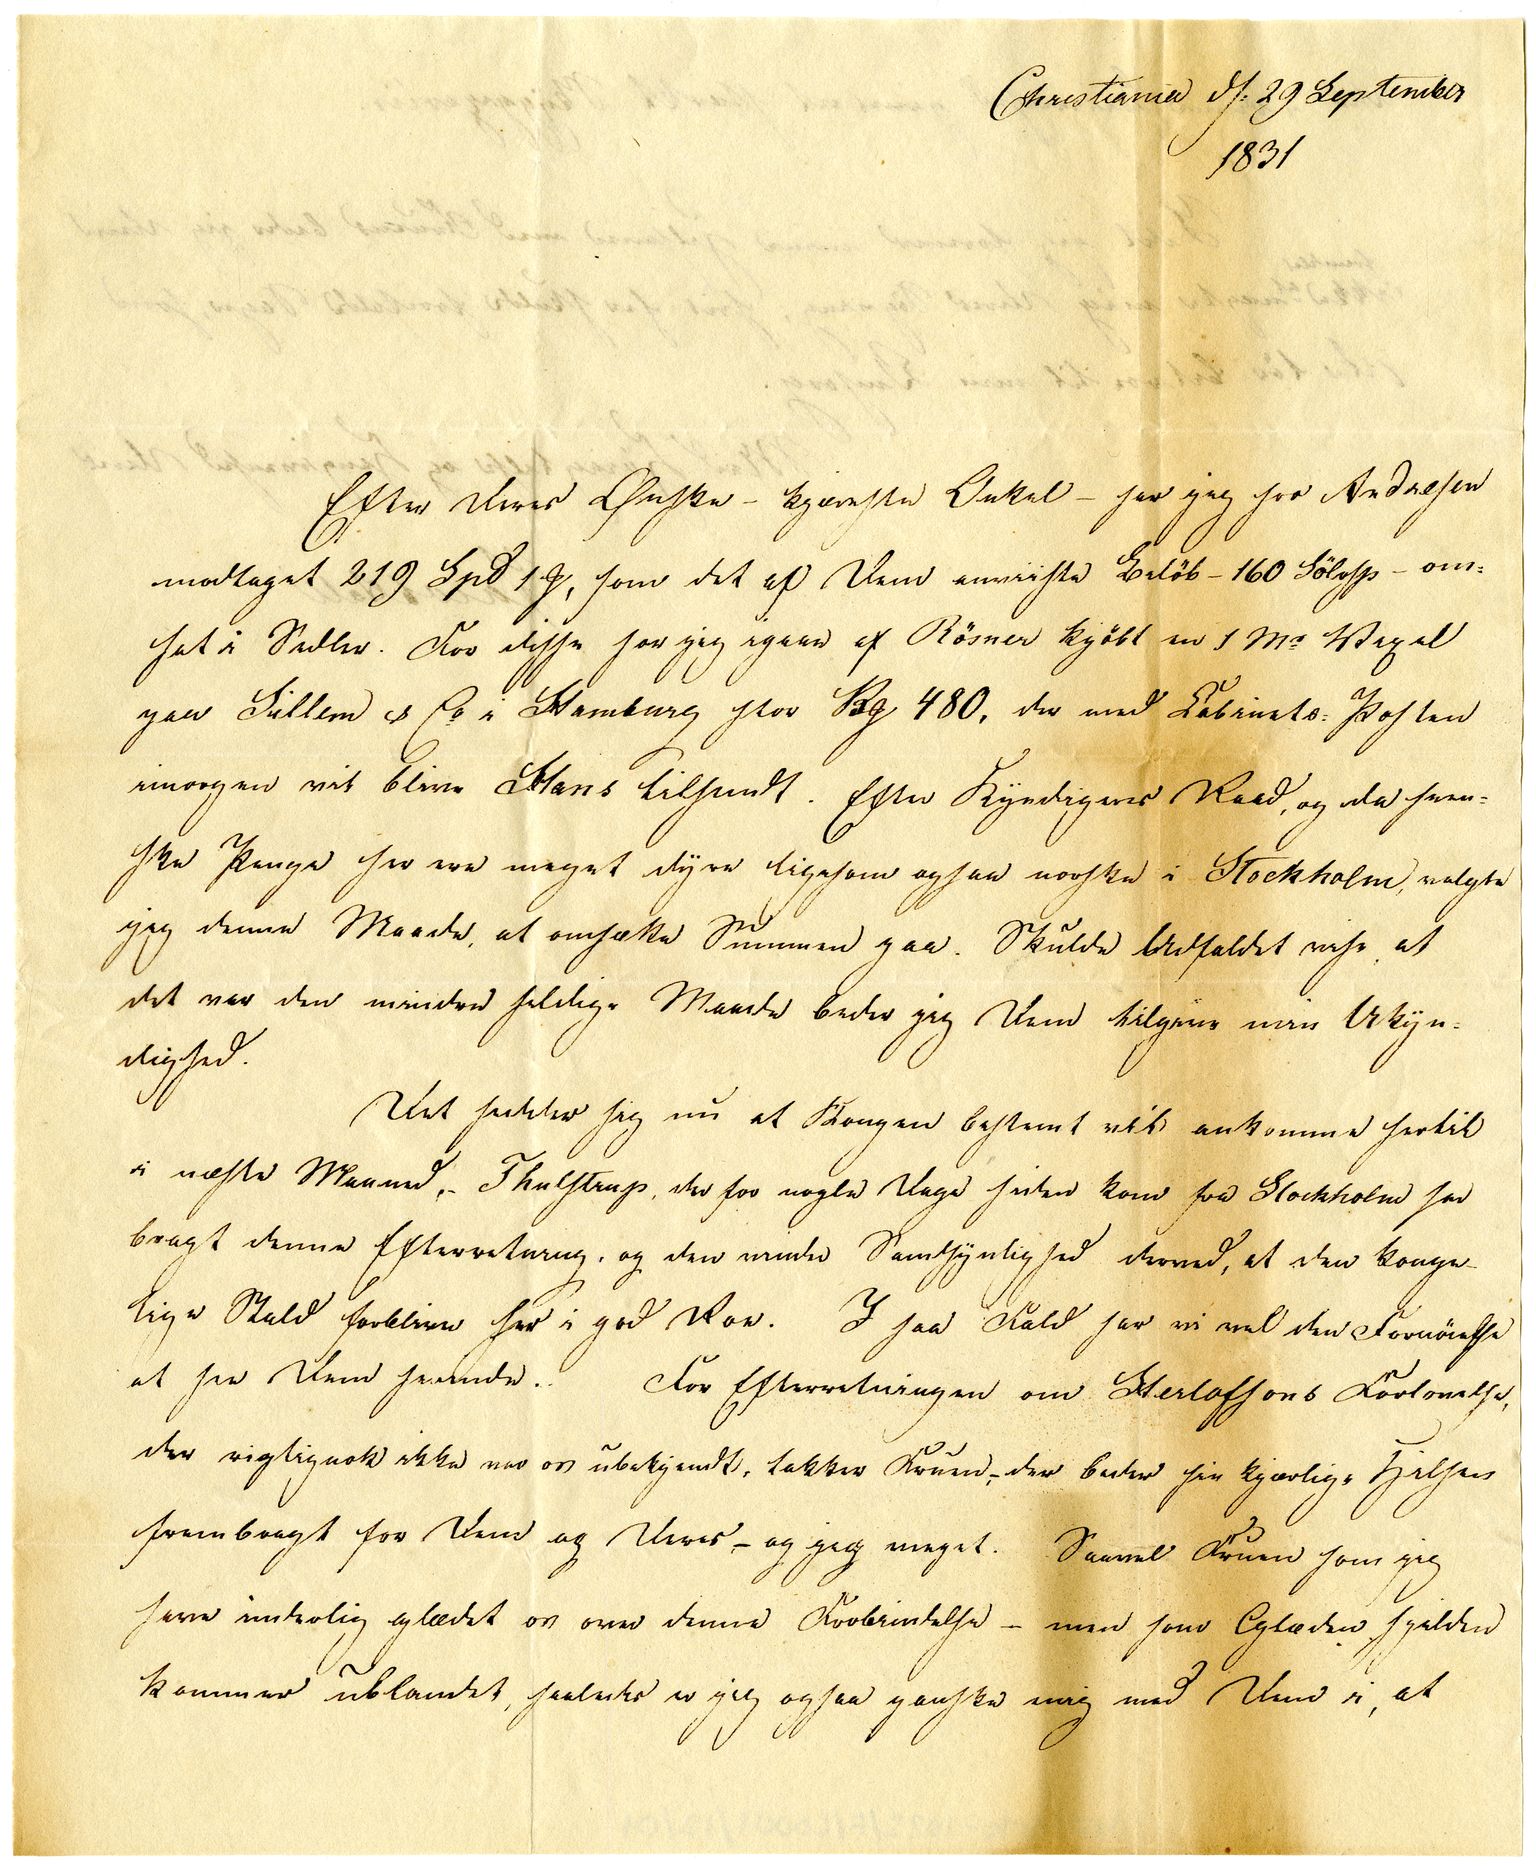 Christiania d: 29 September
1831
Efter Deres Ønske – kjæreste Onkel – har jeg hos Andresen
modtaget 219 Spd 1 , som det af Dem anviiste Beløb – 160 Sölvsp – om:
sat i Sedler. For disse har jeg igaar af Rösner kjöbt en 1 Ms Vexel
paa Sillem & Co i Hamburg stor 480, der med Cabinets: Posten
imorgen vil blive Hans tilsendt. Efter Kyndigeres Raad, og da sven:
ske Penge her ere meget dyre ligesom ogsaa norske i Stockholm, valgte
jeg denne Maade, at omsætte Summen paa. Skulde Udfaldet vise, at
det var den mindre heldige Maade beder jeg Dem tilgive min Ukyn:
dighed.
Det hedder sig nu at Kongen bestemt vil ankomme hertil
i næste Maaned, – Thulstrup, der for nogle Dage siden kom fra Stockholm har
bragt denne Efterretning, og den vinder Sandsynlighed derved, at den konge-
lige Stald forbliver her i god Roe. I saa Fald har vi vel den Fornöielse
at see Dem herinde. For Efterretningen om Herlofsons Forlovelse,
der rigtignok ikke var os ubekjendt, takker Fruen, – der beder sin kjærlige Hilsen
frembragt for Dem og Deres – og jeg meget. Saavel Fruen som jeg
have inderlig glædet os over denne Forbindelse – men som Glæden sjelden
kommer ublandet, saaledes er jeg ogsaa ganske enig med Dem i, at